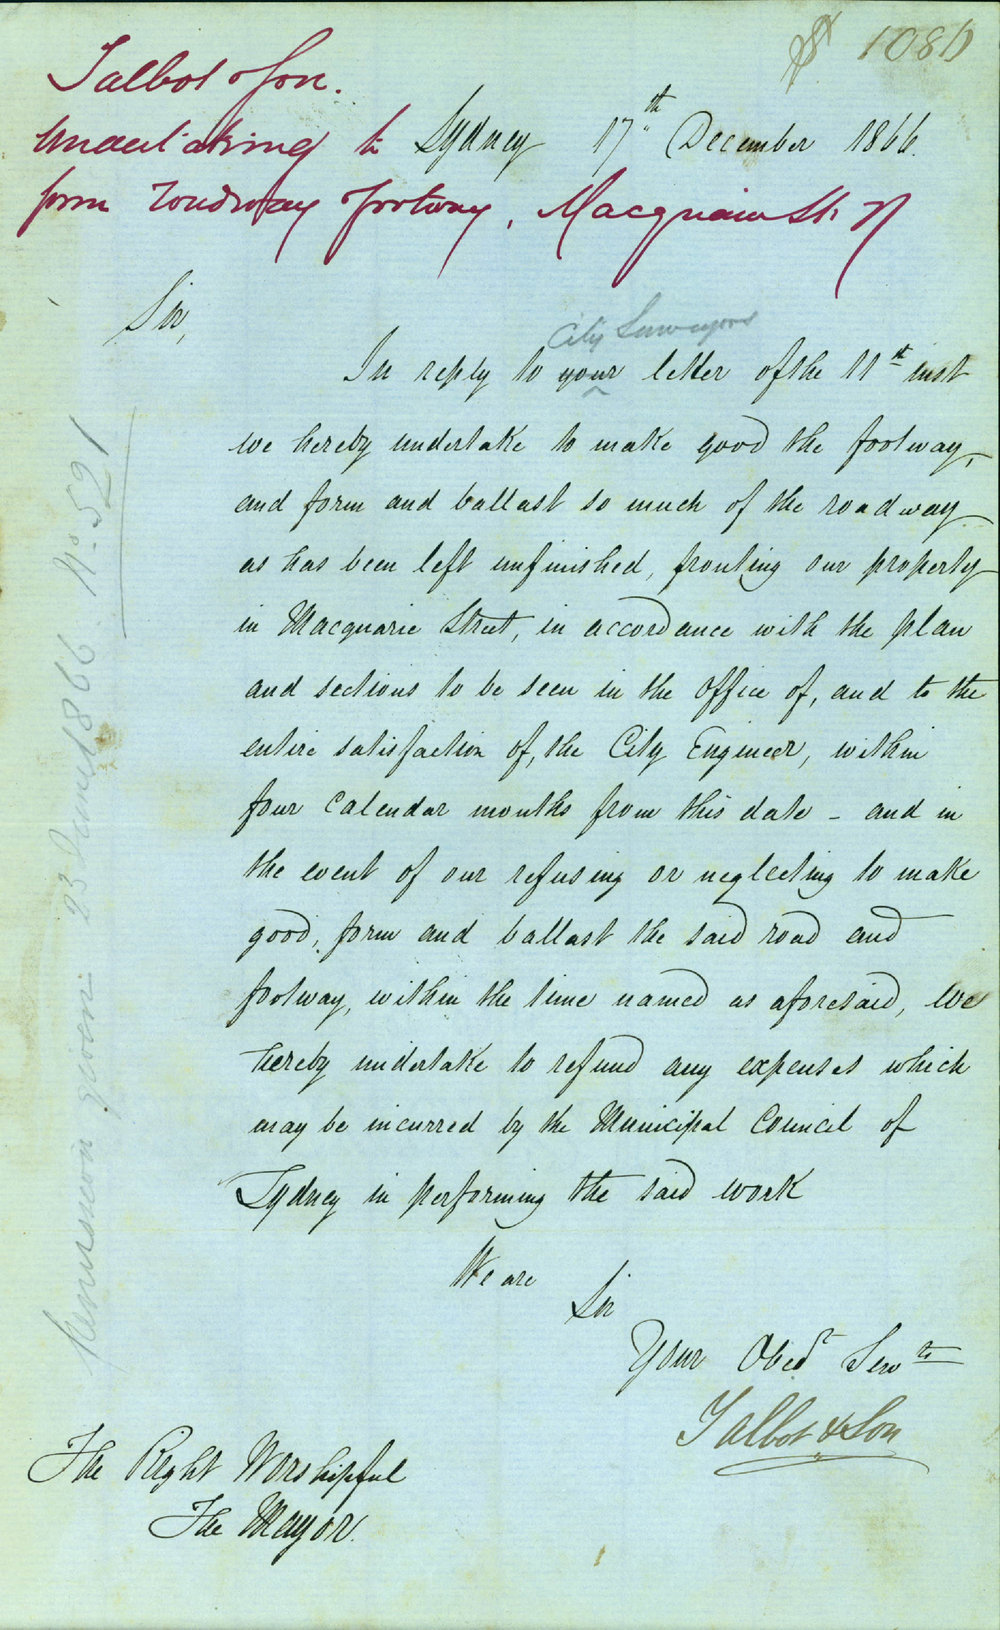 1086
Talbot & Son.
Undertaking to
form roadway & footway, Macquarie St. N
Sydney 17th December 1866.
Sir,
City Surveyors
In reply to your letter of the 11th inst
we hereby undertake to make good the footway,
and form and ballast so much of the roadway
as has been left unfinished, fronting our property
in Macquarie Street, in accordance with the plan
and sections to be seen in the office of, and to the
entire satisfaction of, the City Engineer, within
four calendar months from this date - and in
the event of our refusing or neglecting to make
good, form and ballast the said road and
footway, within the time named as aforesaid, we
hereby undertake to refund any expenses which
may be incurred by the Municipal Council of
Sydney in performing the said work
We are
Sir
Your Obedt Servts
Talbot & Son
The Right Worshipful
The Mayor.
Permission given 23 1866. No. 521